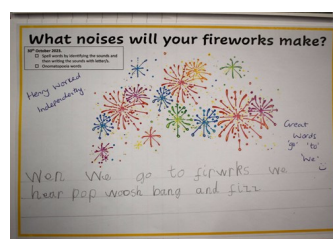 What noises will your fireworks make?
30th October 2023.
Spell words by identifying the sounds and
then writing the sounds with letter/s.
Onomatopoeia words
Henry worked
independently
Great
words
'go' 'to'
'we'
Wen We go to firwrks we
hear pop woosh bang and fizz